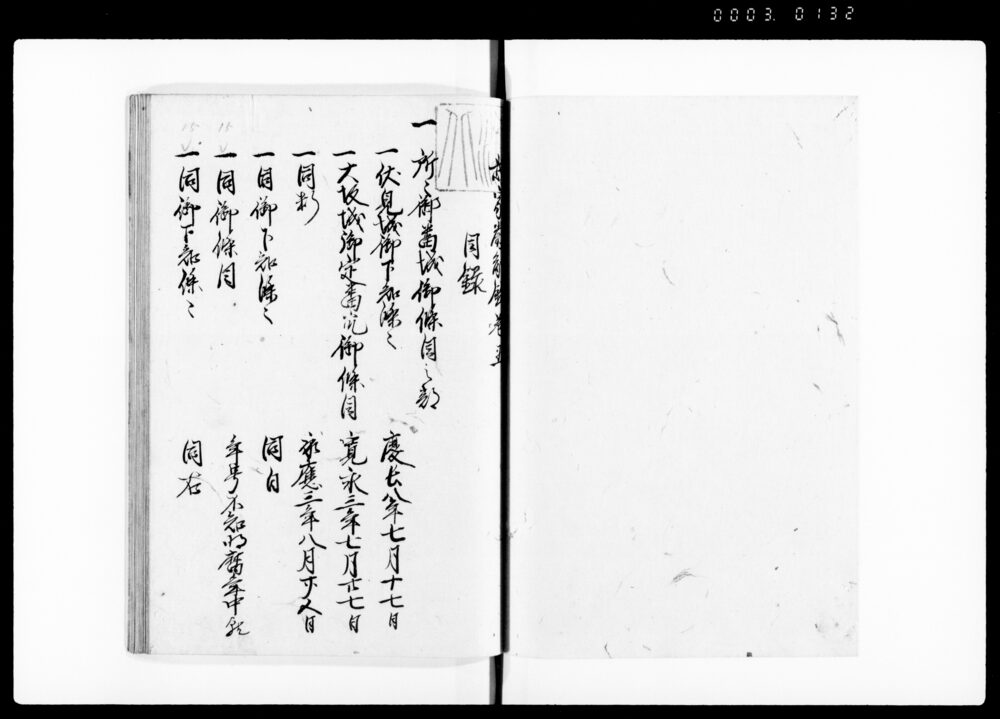 0003. 0132
目録
一 所々御番城御條目之部
一伏見城御下知條々 慶長八年七月十七日
一大坂城御定番江御條目 寛永三年七月廿七日
一同断 承應三年八月廿又日
一同御下知條々 同日
一同御條目 年号不知
一同御下知條々 同右